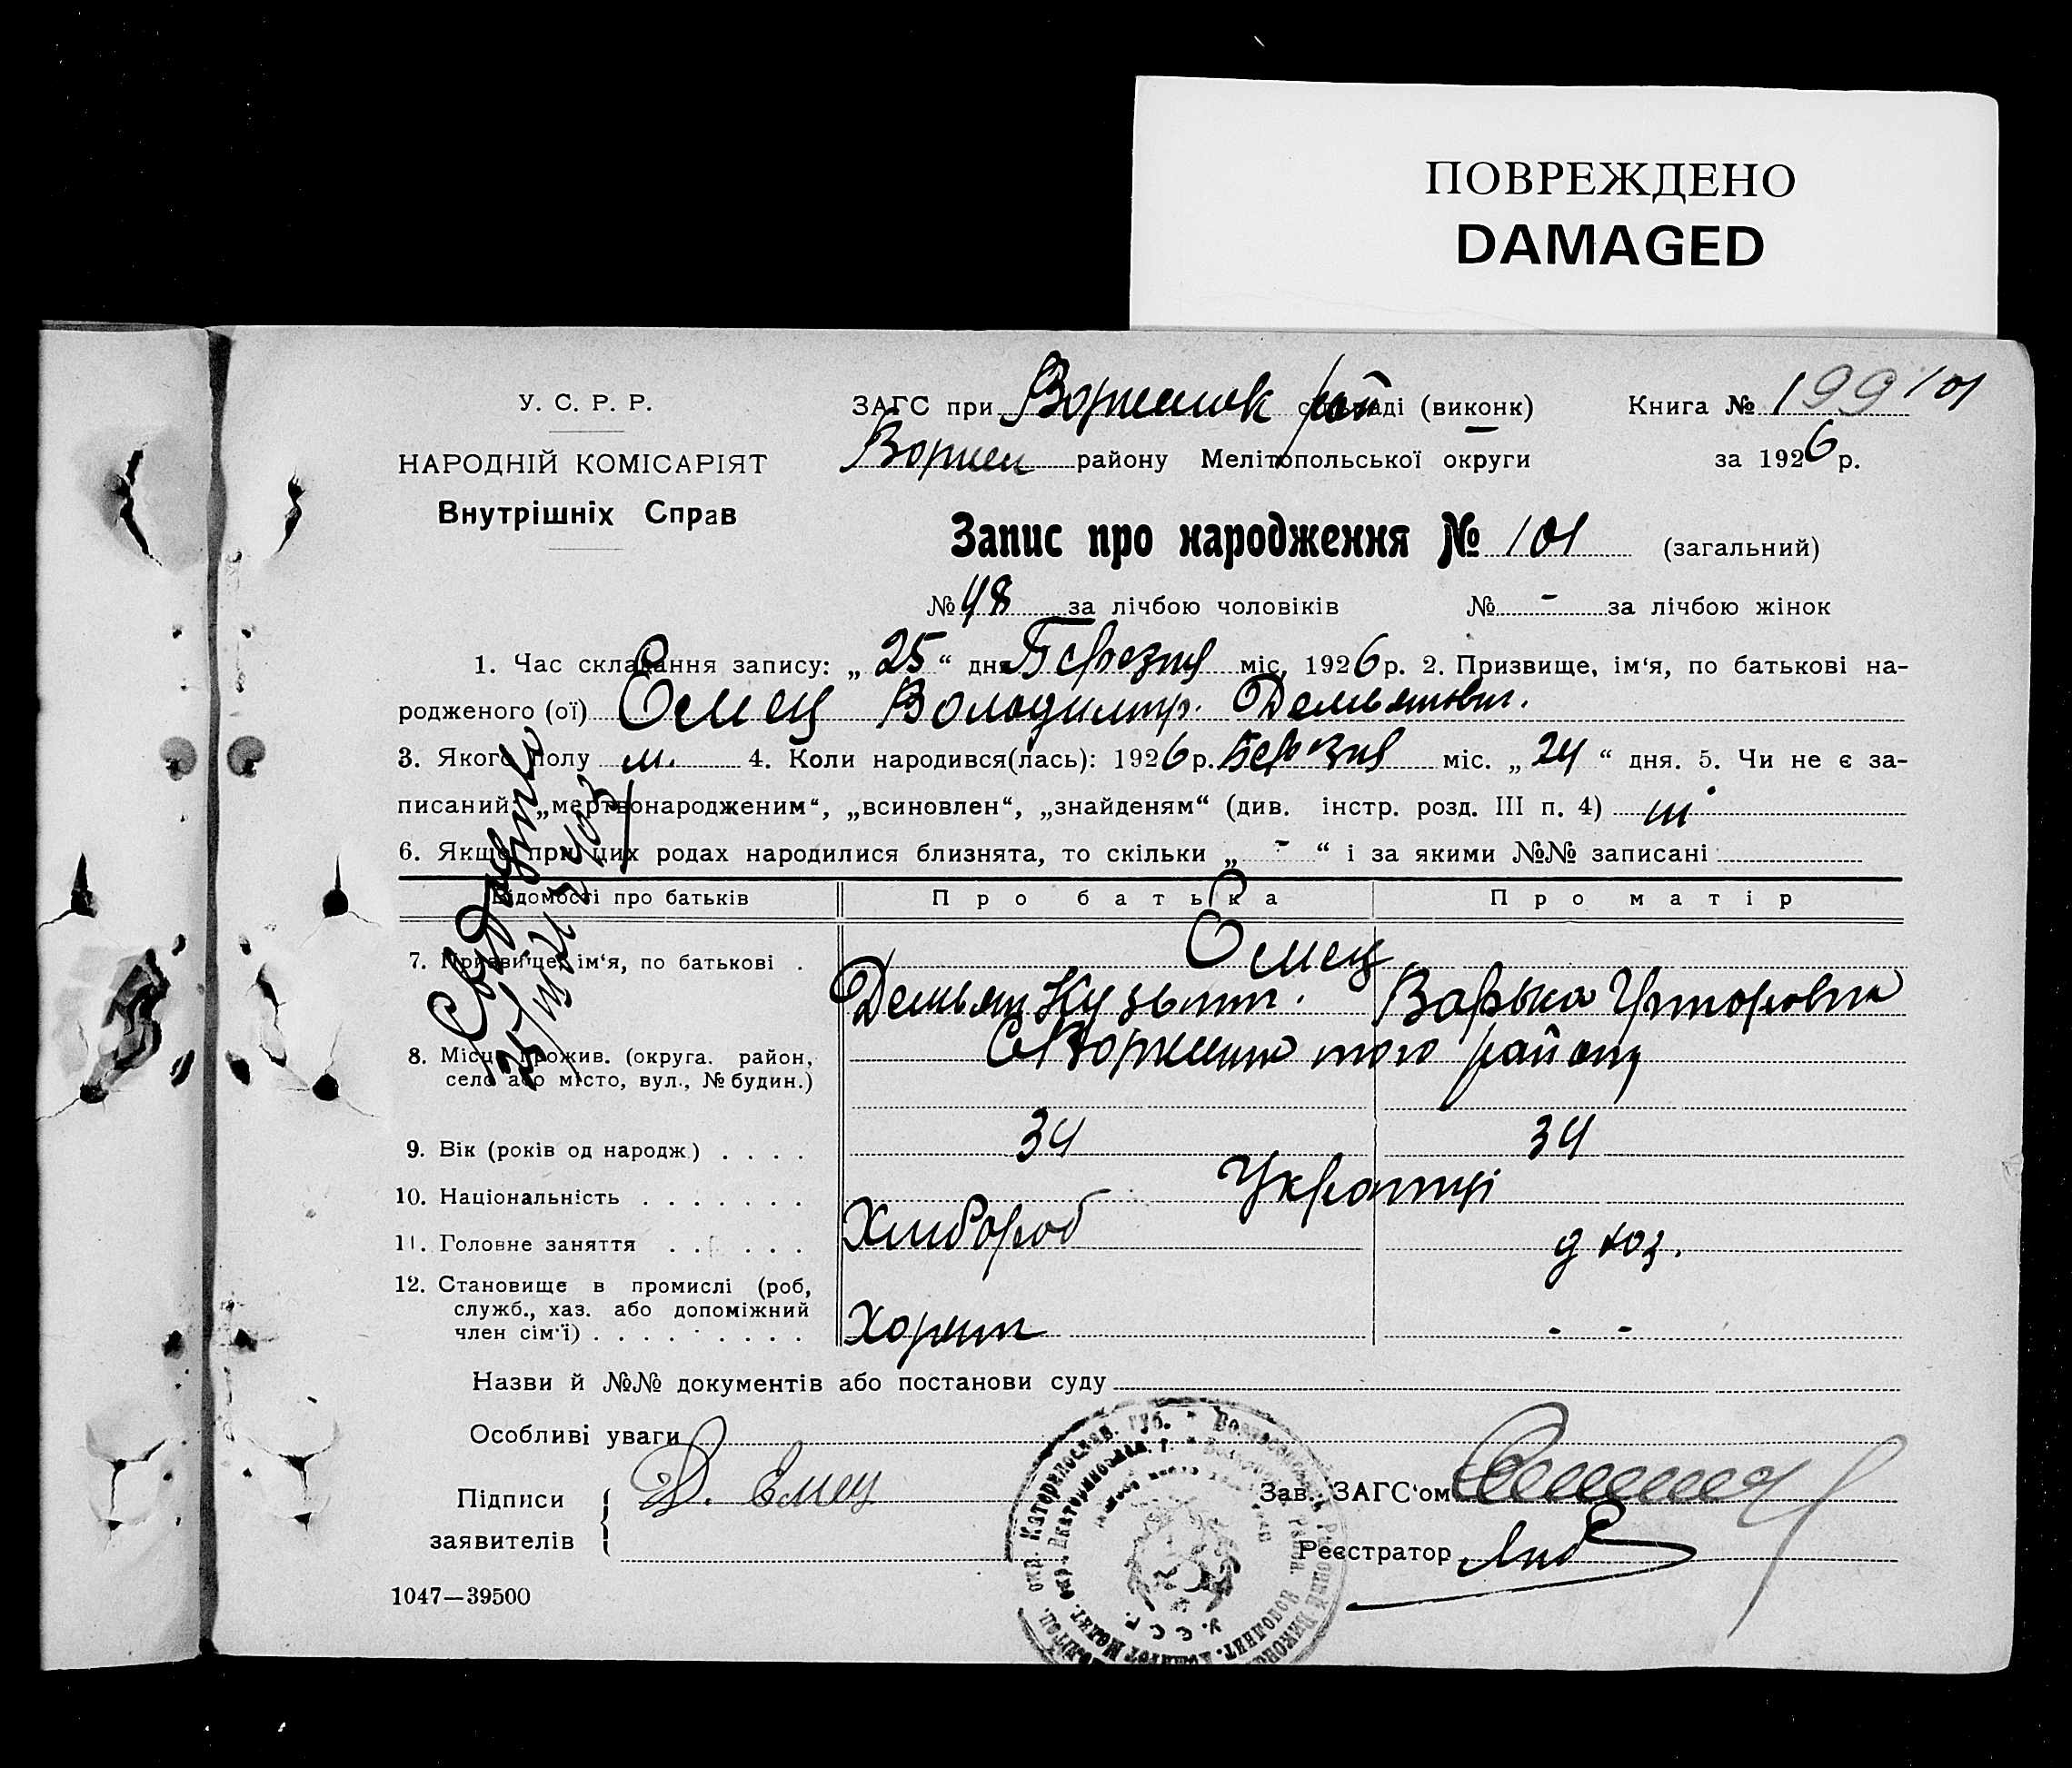 ПОВРЕЖДЕНО
DAMAGED
У. С. Р. Р.
НАРОДНІЙ КОМІСАРІЯТ
Внутрішніх Справ
ЗАГС при рай (виконк) Книга № 199 101
району Мелітопольської округи за 1926 р.
Запис про народження № 101 (загальний)
№ 48 за лічбою чоловіків № - за лічбою жінок
1. Час складання запису: „ 25 “ дня Березня міс, 1926 р. 2. Призвище, ім‘я, по батькові на-
родженого (ої) Емец Володимир Демьянович.
3. Якого полу м. 4. Коли народився(лась): 1926 р. Березня міс. „ 24 “ дня. 5. Чи не є за-
писаний „мертвонародженим“, „всиновлен“, „знайденям“ (див. інстр. розд. III п. 4) ні
6. Якщо при цих родах народилися близнята, то скільки „ - “ і за якими №№ записані
Відомості про батьків Про батька Про матір
7. Призвище, ім‘я, по батькові . Емец
Демьян Кузьмич. Варька
8. Місце прожив. (округа. район, того району
село або місто, вул., № будин.)
9. Вік (років од народж.) . . . . 34 34
10. Національність . . . . . . . Українці
11. Головне заняття . . . . . . Хлибороб д хоз.
12. Становище в промислі (роб,
служб., хаз. або допоміжний
член сім‘ї) . . . . . . . . . - -
Назви й №№ документів або постанови суду
Особливі уваги
Підписи Д. Емец Зав. ЗАГС‘ом
заявителів Реєстратор
У. С. С. Р.
1047—39500